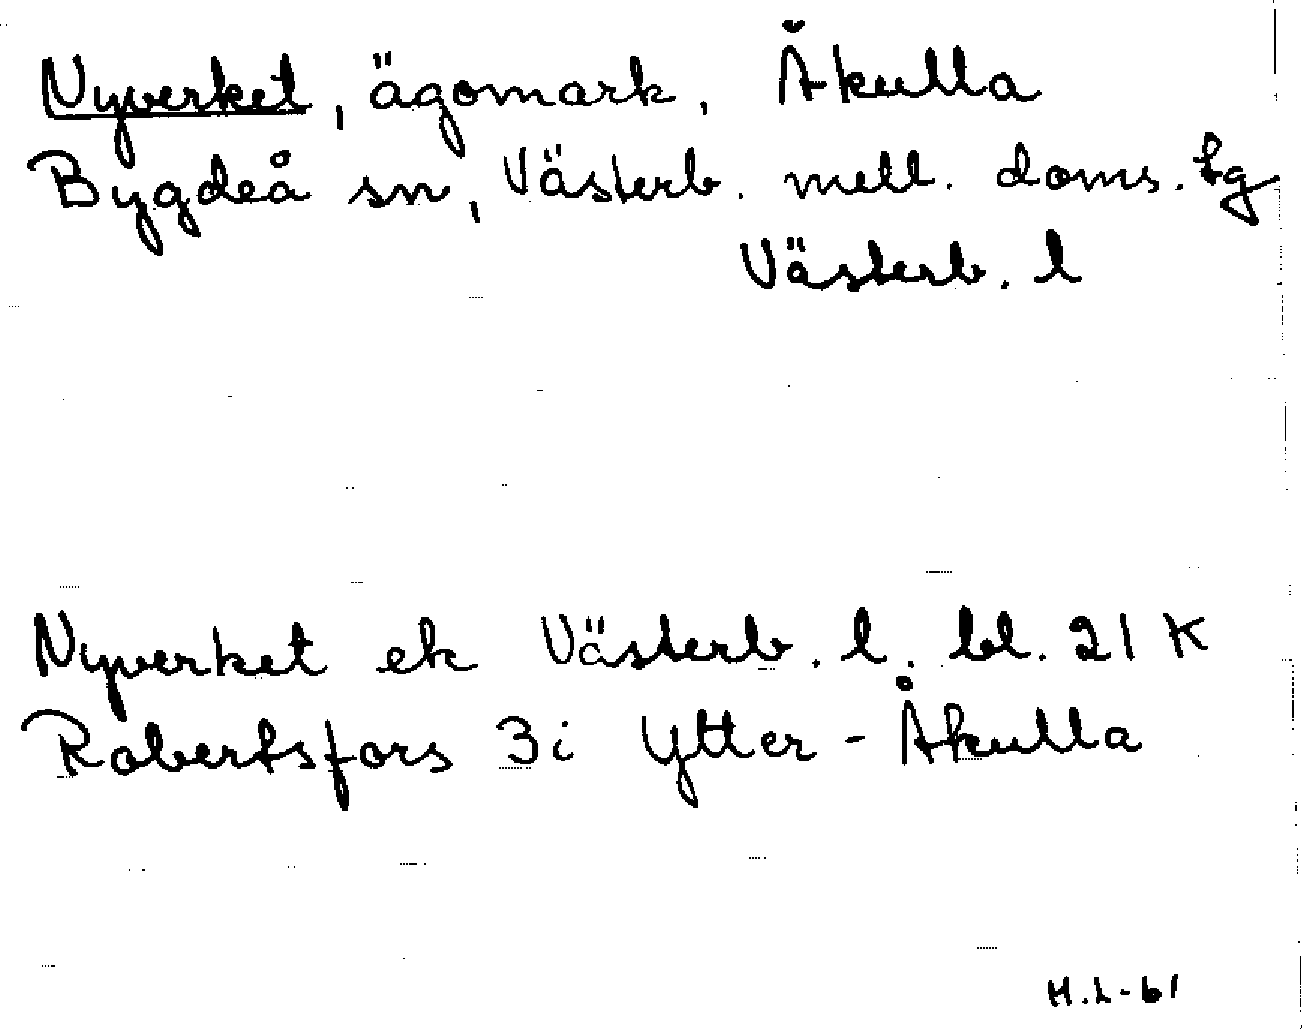 Nyverket, ägomark, Åkulla
Bygdeå sn, Västerb. mell. doms. tg
Västerb. l
Nyverket ek Västerb. l. bl. 21 K
Robertsfors 3i Ytter-Åkulla
H.L-61